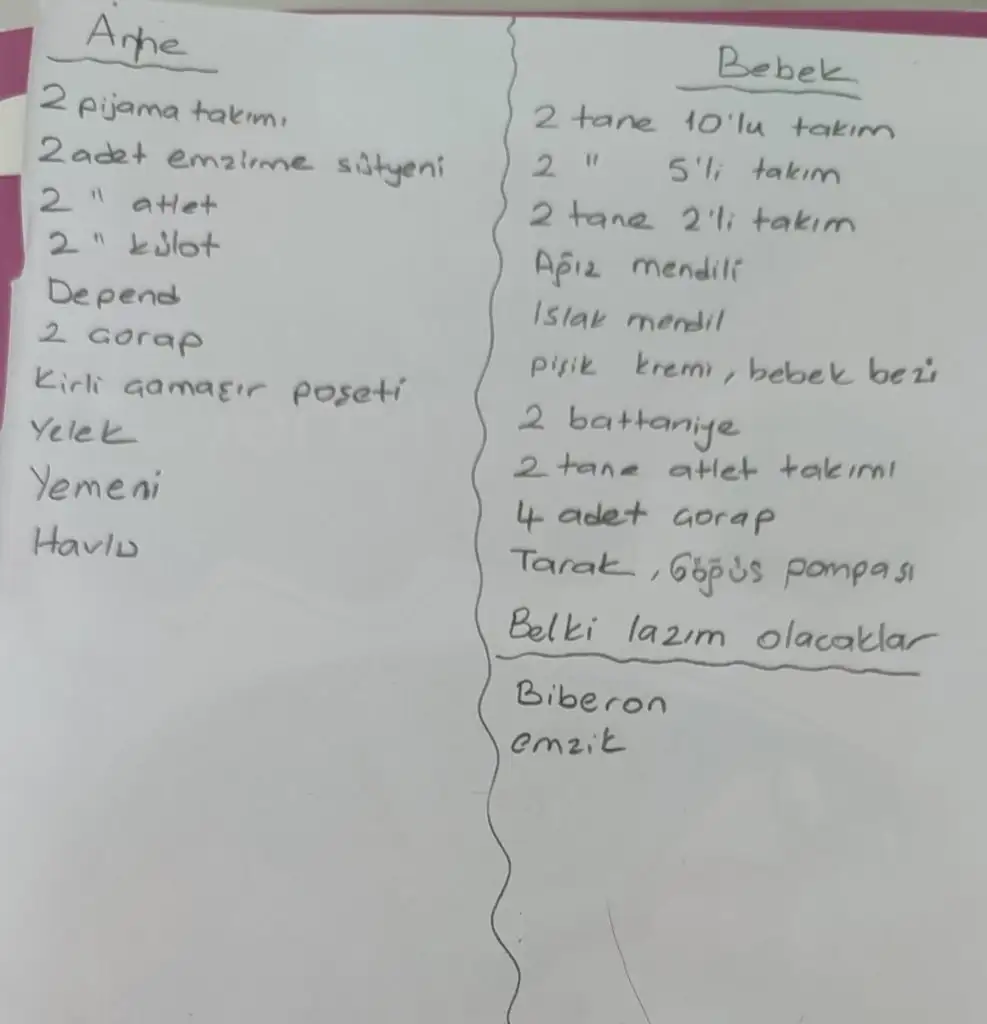 Anne
2 pijama takımı
2 adet emzirme sütyeni
2 " atlet
2 " külot
Depend
2 Çorap
Kirli çamaşır poşeti
Yelek
Yemeni
Havlu
Bebek
2 tane 10'lu takım
2 " 5'li takım
2 tane 2'li takım
Ağız mendili
Islak mendil
pişik kremi, bebek bezi
2 battaniye
2 tane atlet takımı
4 adet çorap
Tarak, Göğüs pompası
Belki lazım olacaklar
Biberon
emzik